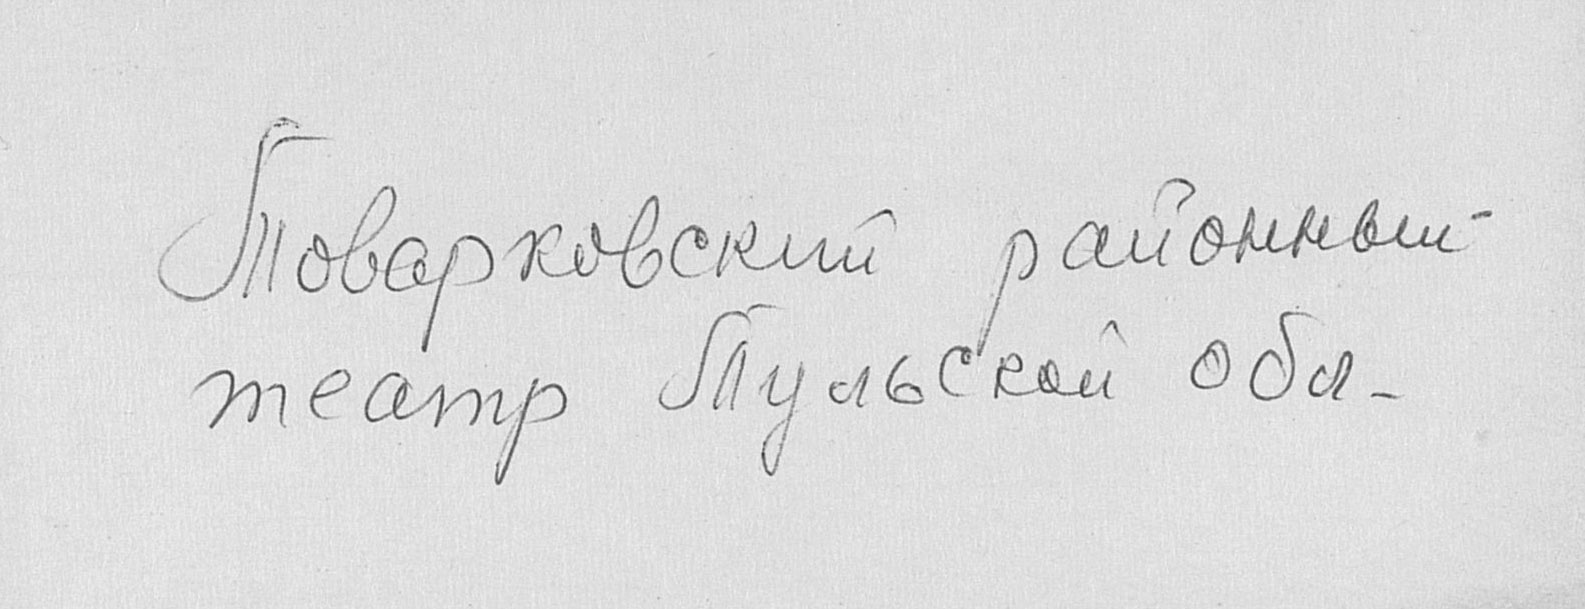 Товарковский районный
театр Тульской обл-